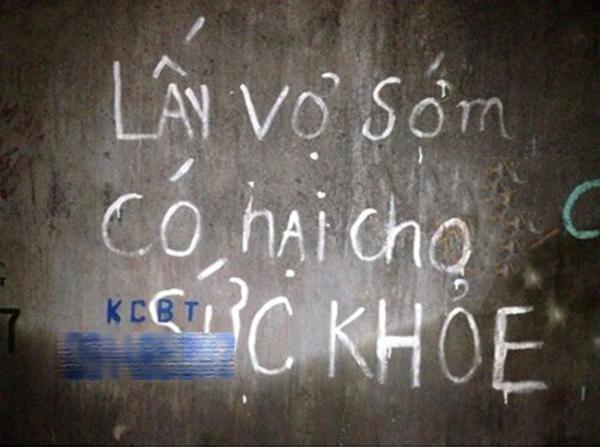 LẤY VỢ SỚm
CÓ hẠi cho
KCBT
SỨC KHỎE